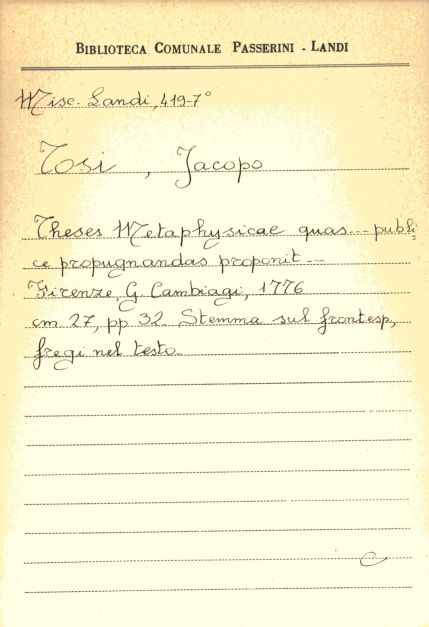 BIBLIOTECA COMUNALE PASSERINI - LANDI
Misc. Landi, 419-7°
Tosi, Jacopo
Theses Metaphysicae quas... publi-
ce propugnandas proponit...
Firenze, G. Cambiagi, 1776
cm 27, pp 32. Stemma sul frontesp.,
fregi nel testo.